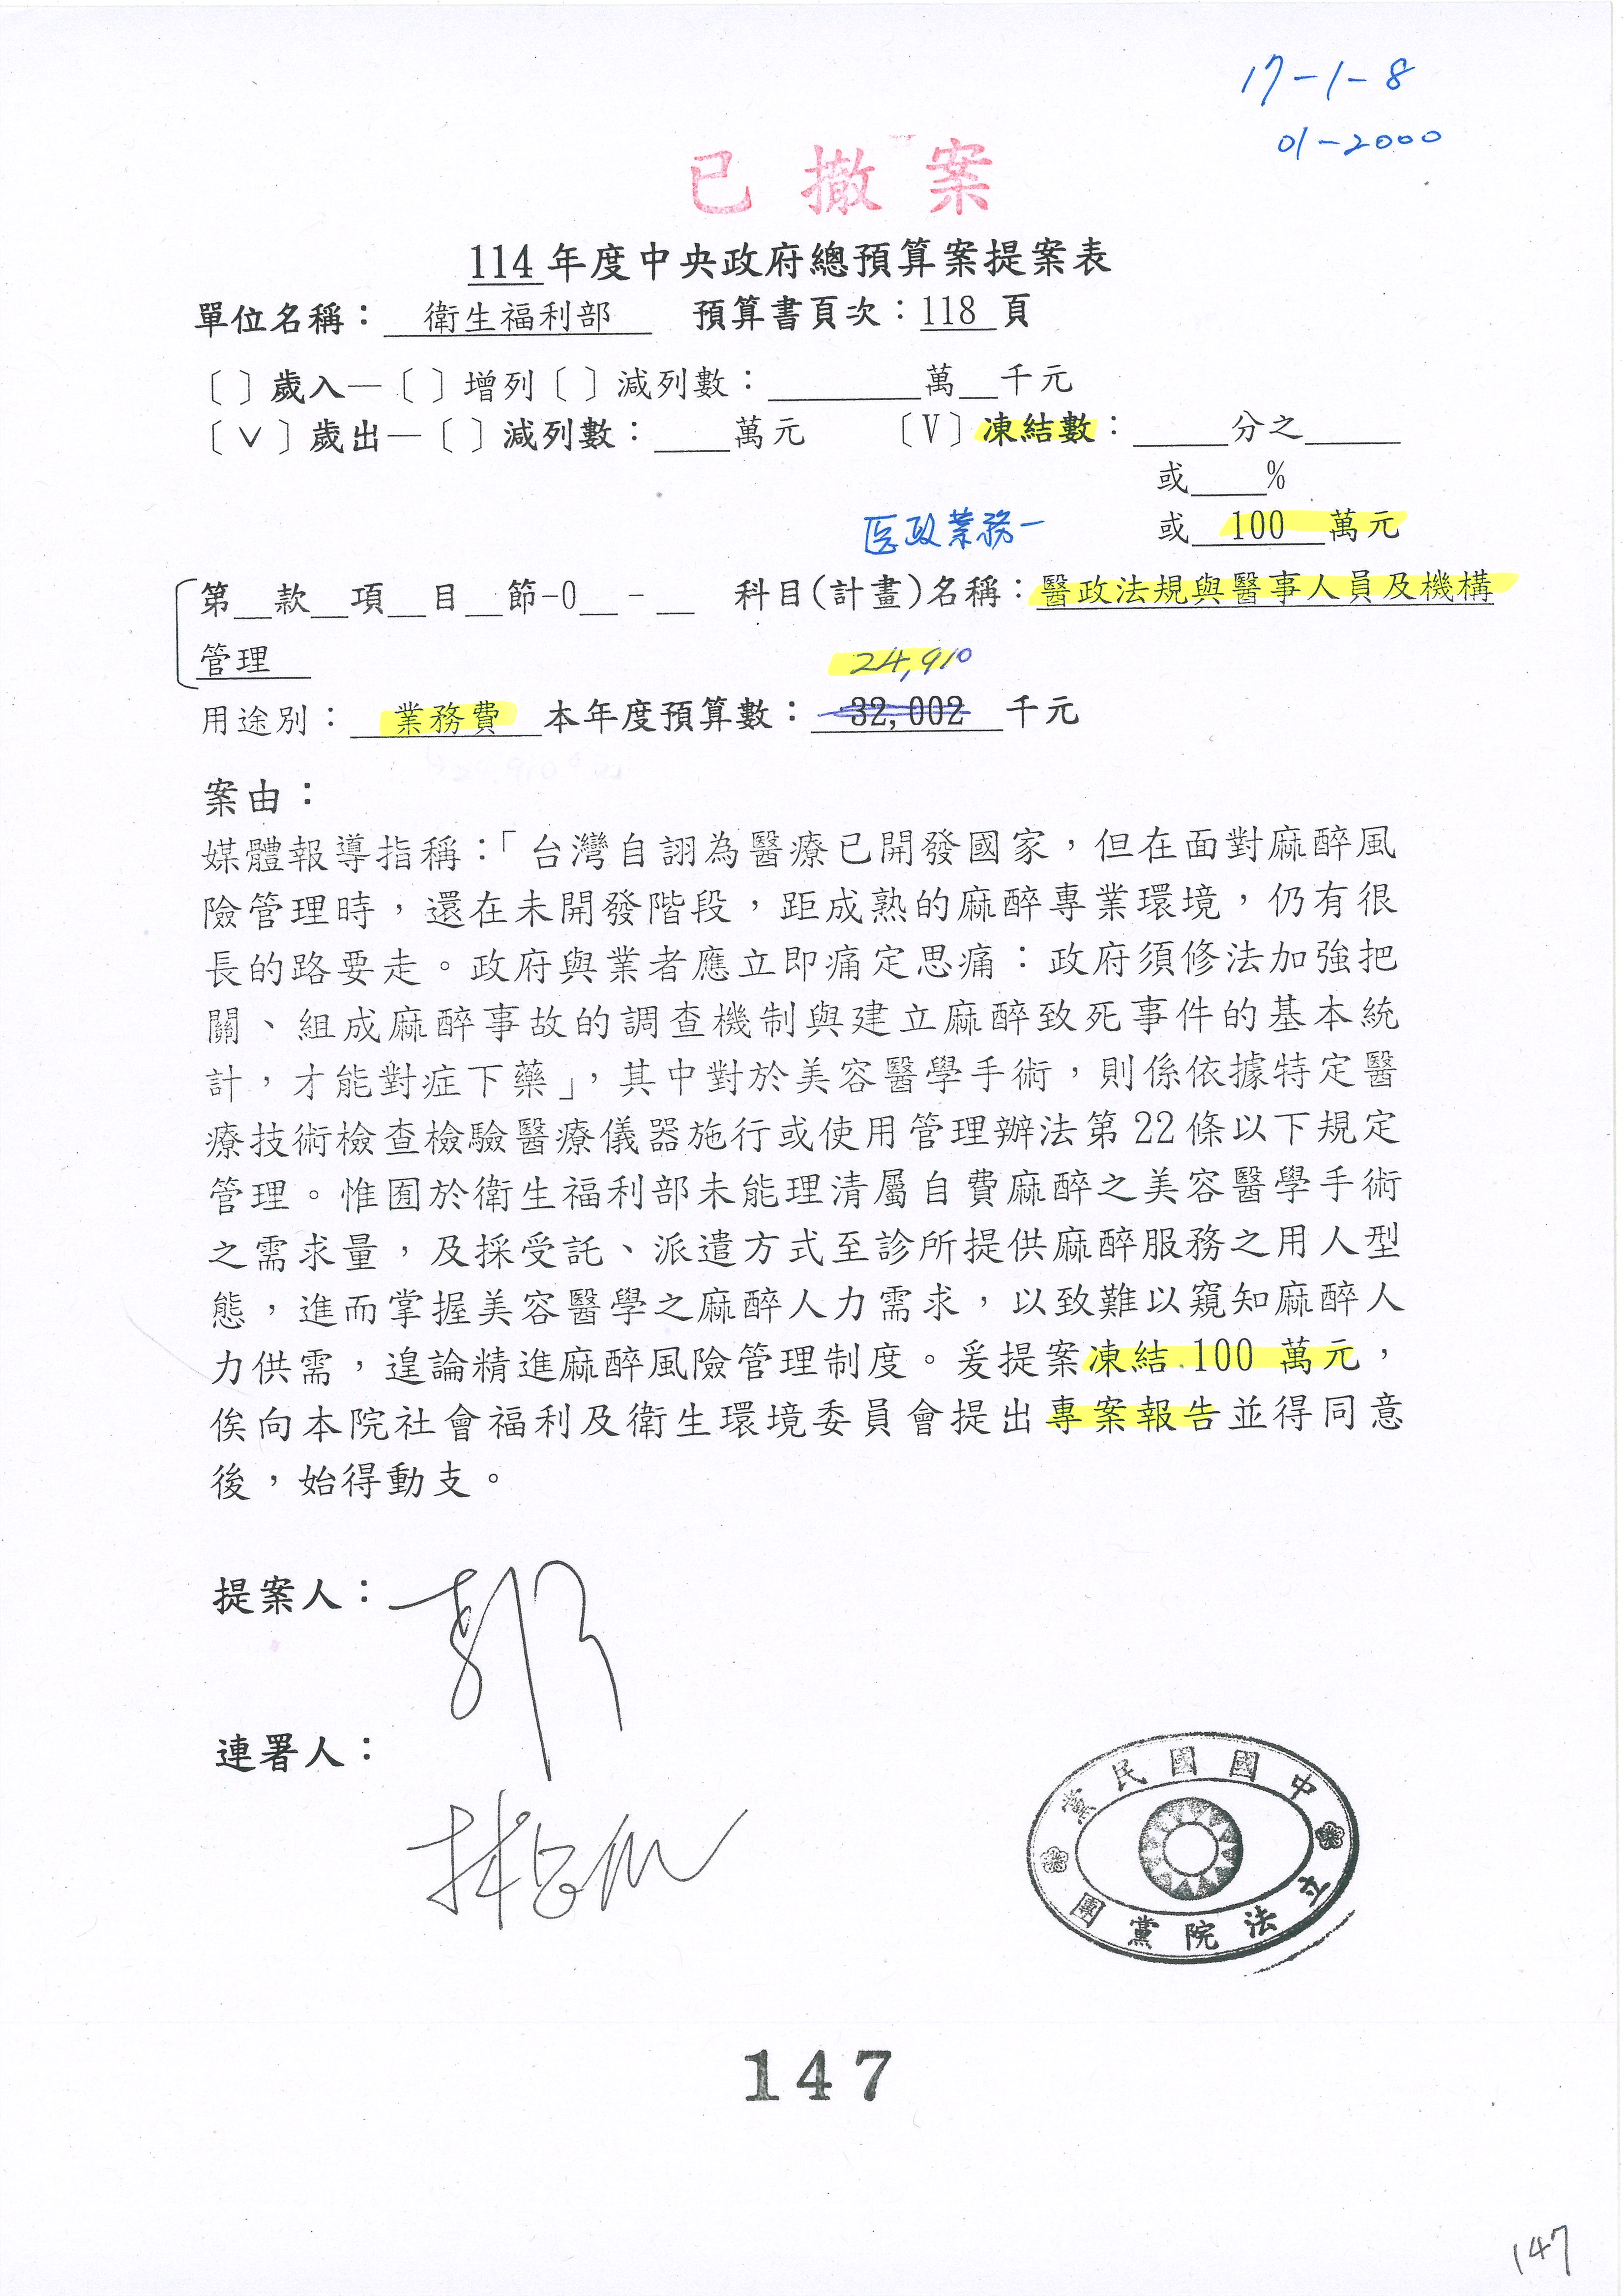 17-1-8
01-2000
已撤案
114年度中央政府總預算案提案表
單位名稱：衛生福利部 預算書頁次：118頁
〔〕歲入—〔〕增列〔〕減列數：＿＿萬＿千元
〔V〕歲出—〔〕減列數：＿＿萬元 〔V〕凍結數：＿＿分之＿＿
或＿＿%
医政業務- 或 100 萬元
第＿款＿項＿目＿節-0＿-＿ 科目(計畫)名稱：醫政法規與醫事人員及機構
管理
24,910
用途別：業務費 本年度預算數：32,002 千元
案由：
媒體報導指稱：「台灣自詡為醫療已開發國家，但在面對麻醉風
險管理時，還在未開發階段，距成熟的麻醉專業環境，仍有很
長的路要走。政府與業者應立即痛定思痛：政府須修法加強把
關、組成麻醉事故的調查機制與建立麻醉致死事件的基本統
計，才能對症下藥」，其中對於美容醫學手術，則係依據特定醫
療技術檢查檢驗醫療儀器施行或使用管理辦法第22條以下規定
管理。惟囿於衛生福利部未能理清屬自費麻醉之美容醫學手術
之需求量，及採受託、派遣方式至診所提供麻醉服務之用人型
態，進而掌握美容醫學之麻醉人力需求，以致難以窺知麻醉人
力供需，遑論精進麻醉風險管理制度。爰提案凍結 100 萬元，
俟向本院社會福利及衛生環境委員會提出專案報告並得同意
後，始得動支。
提案人：
連署人：
中國國民黨
立法院黨團
147
147